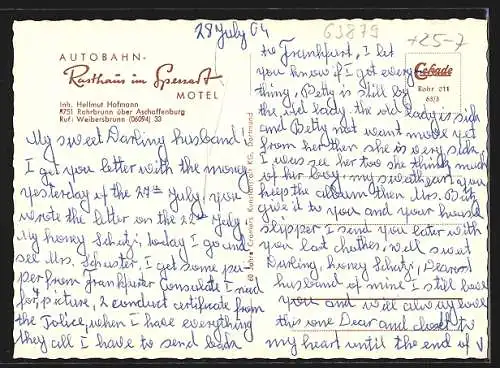 28 July 04
63879
+25-7
AUTOBAHN-
Rasthaus im Spessart
MOTEL
Inh. Hellmut Hofmann
8751 Rohrbrunn über Aschaffenburg
Ruf: Weibersbrunn (06094) 33
My sweet Darling husband!
I got you letter with the money
yesterday of the 27th July, you
wrote the letter on the 22th July
My honey Schatzi, today I go and
see Mrs. Schuster, I get some pa-
per from Frankfurter Consulate I need
for picture, 2 conduct certificate from
the Police, when I have everything
they all I have to send back
to Frankfurt, I let
you know if I got every
thing, Betty is still by
the old lady, the old lady is sick
and Betty not want move yet
from her then she is very sick,
I was see her too she thinks much
of her boy, my sweetheart you
keeps the album then Mrs.
give it to you and your house
slipper I send you later with
you last clothes, well sweet
Darling, honey Schatzi, Dearest
husband of mine I still love
you and will always love
the one Dear and closet to
my heart until the end of
Cekade
Rohr 211
66/3
Cramers Kunstanstalt KG, Dortmund